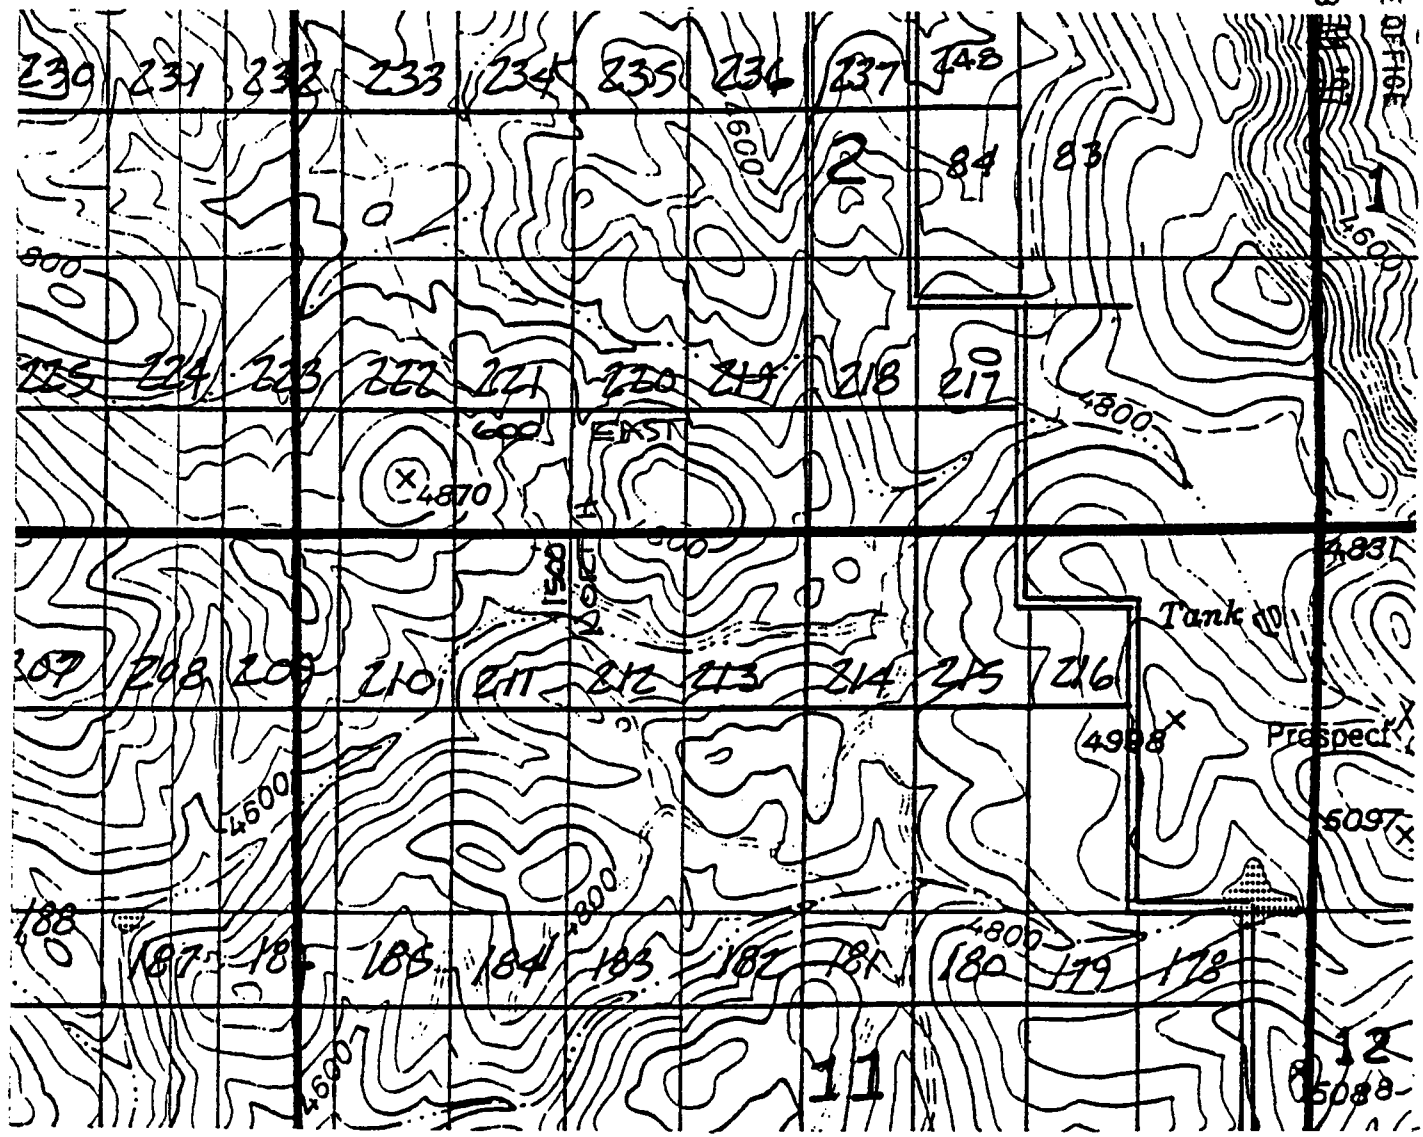 OFFICE
230 231 232 233 234 235 236 237 248
4600
2 84 83
1
4600
800
225 224 223 222 221 220 219 218 217 0
4800
600 EAST
4870
800
4831
1500 NORTH
Tank
207 208 209 210 211 212 213 214 215 216
4998
Prospect
4600
5097
4800
188
4800
187 185 184 183 182 181 180 179 178
4600
11 12
5088